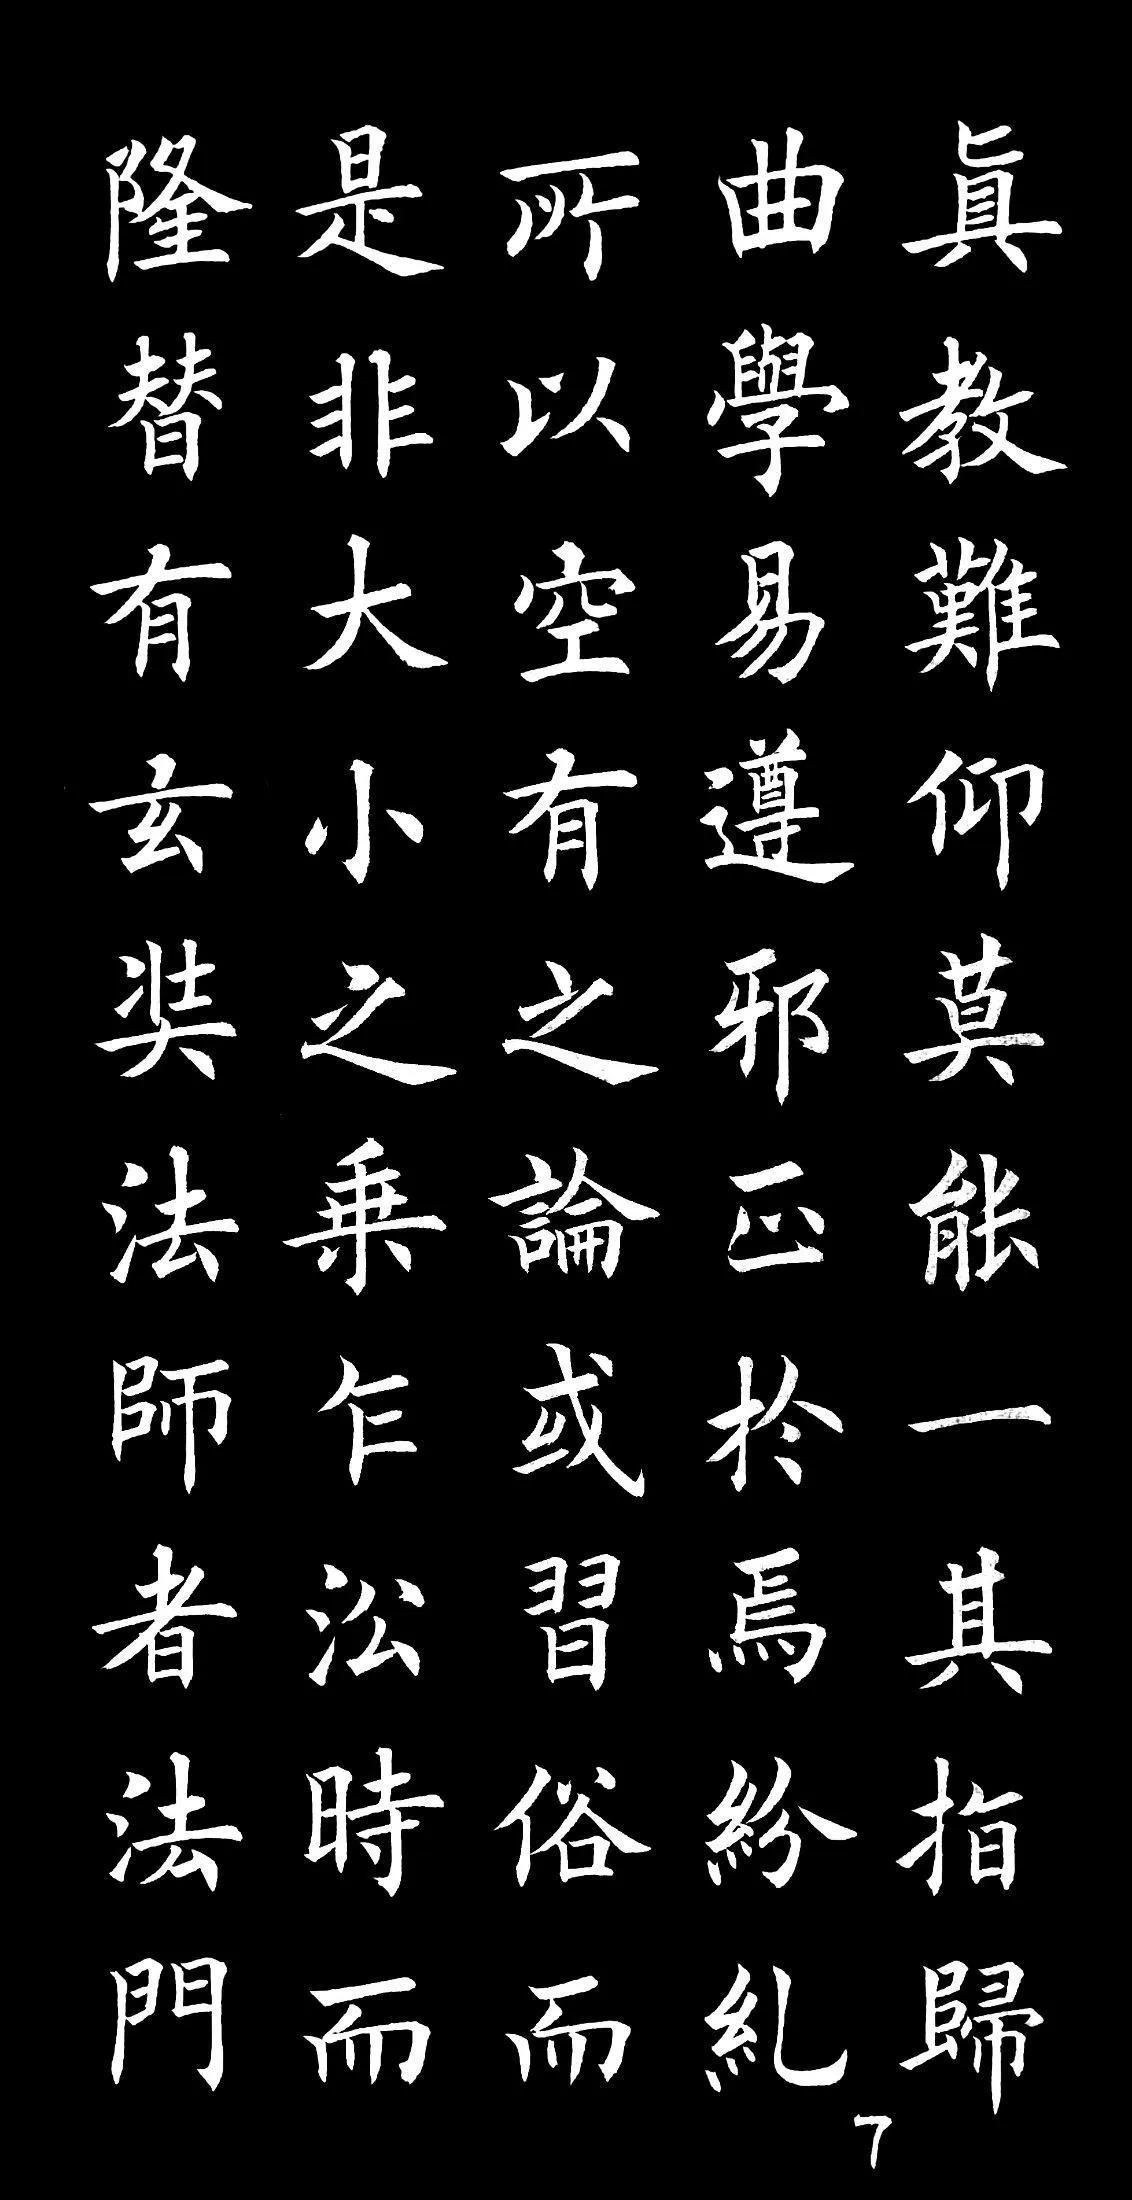 真教難仰莫能一其指歸
曲學易遵邪正於焉紛糺
所以空有之論或習俗而
是非大小之乘乍沿時而
隆替有玄奘法師者法門
7